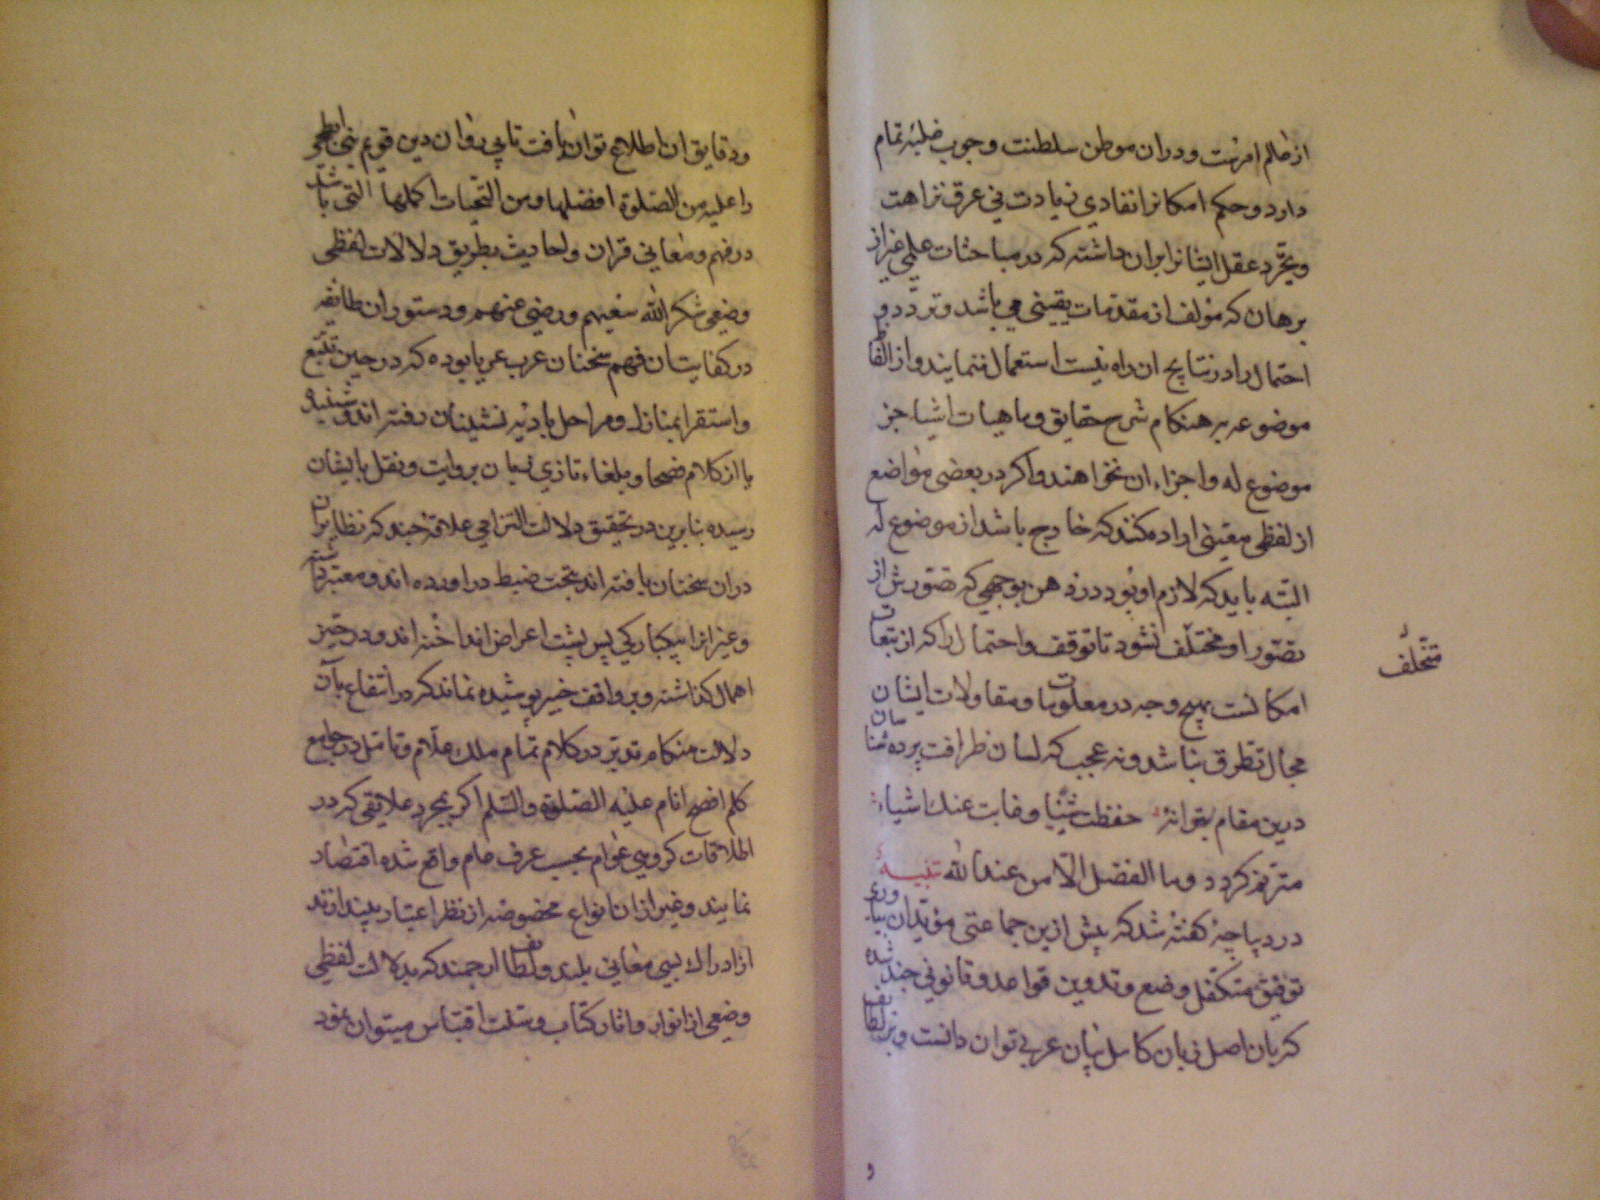 از عالم امرست و دران موطن سلطنت وجوب غلبهٔ تمام
دارد و حکم امکانرا نفادی زیادت نی عرق نزاهت
و تجرد عقل ایشانرا بران داشته که در مباحثات علمی غیر از
برهان که مؤلف از مقدمات یقینی می باشد و تردد و
احتمال را در نتایج ان راه نیست استعمال ننمایند و از الفاظ
موضوعه بر هنکام شرح حقایق و ماهیات اشیا جز
موضوع له و اجزاء ان نخواهند و اکر در بعضی مواضع
از لفظی معنی اراده کنند که خارج باشد از موضوع له
البته باید که لازم او بود در ذهن بوجهی که تصورش از
تصور او مختلف نشود تا توقف و احتمال را که از تبعات
متخلف
امکانست بهیچ وجه در معلومات و مقاولات ایشان
مجال تطرق نباشد و نه عجب که لسان ظرافت پرده شناسان
درین مقام بقوانهٔ حفظت شیئا و غابت عنك اشیاء
مترنم کردد و ما الفضل الا من عند الله تنبیه
در دیباجهٔ کفته شد که پیش ازین جماعتی مؤیدان بیاوری
توفیق متکفل وضع و تدوین قواعد و قانونی چند شده
که بان اصل زبان کامل بیان عربی توان دانست و بر لطائف
و
و دقایق ان اطلاع توان یافت تا پی روان دین قویم نبی ابطحی
را علیه من الصلوة افضلها و من التحیات اکملها التی باشد
در فهم و معانی قران و احادیث بطریق دلالات لفظی
وضعی شکر الله سعیهم و رضی عنهم و دستور ان طائفه
در کفایتان فهم سخنان عرب عربا بوده که در حین تتبع
و استقرا بمنازل و مراحل بادیه نشینان رفته اند و شنیده
یا از کلام فصحا و بلغاء تازی زبان بروایت و نقل بایشان
رسیده بنابرین در تحقیق دلالت التزامی علاقهٔ چند که نظایر ان
دران سخنان یافته اند بتحت ضبط در اورده اند و معتبر داشته
و غیر انرا بیکبارکی پس پشت اعراض انداخته اند و در حیز
اهمال کذاشته و بر واقف خبیر پوشیده نماند که در انتفاع بآن
دلالت هنکام تدبر در کلام تمام ملك علام و تامل در جوامع
کلم افصح انام علیه الصلوة والسلم اکر بمجرد علایقی که در
اطلاقات کروهی عوام بحسب عرف عام واقع شده اقتصاد
نمایند و غیر از ان انواع مخصوصه از نظر اعتبار بیندازند
از ادراك بسی معانی بلند و لطائف ارجمند که بدلالت لفظی
وضعی از انوار و اثار کتاب و سنت اقتباس میتوان نمود